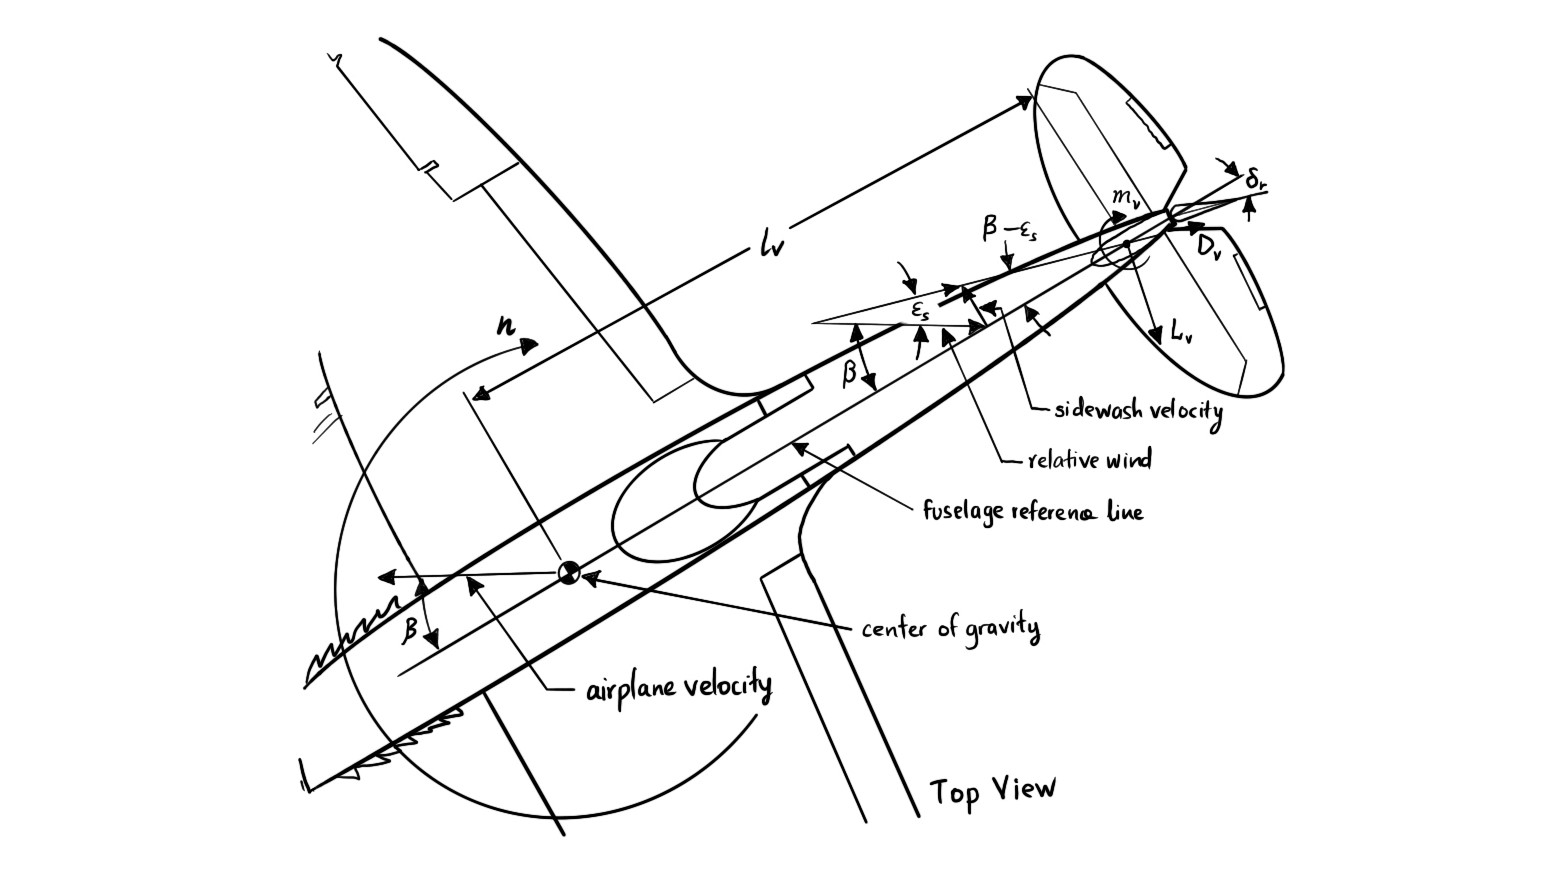 δr
mv
β-εs
Dv
lv
εs
n
Lv
β
sidewash velocity
relative wind
fuselage reference line
center of gravity
β
airplane velocity
Top View